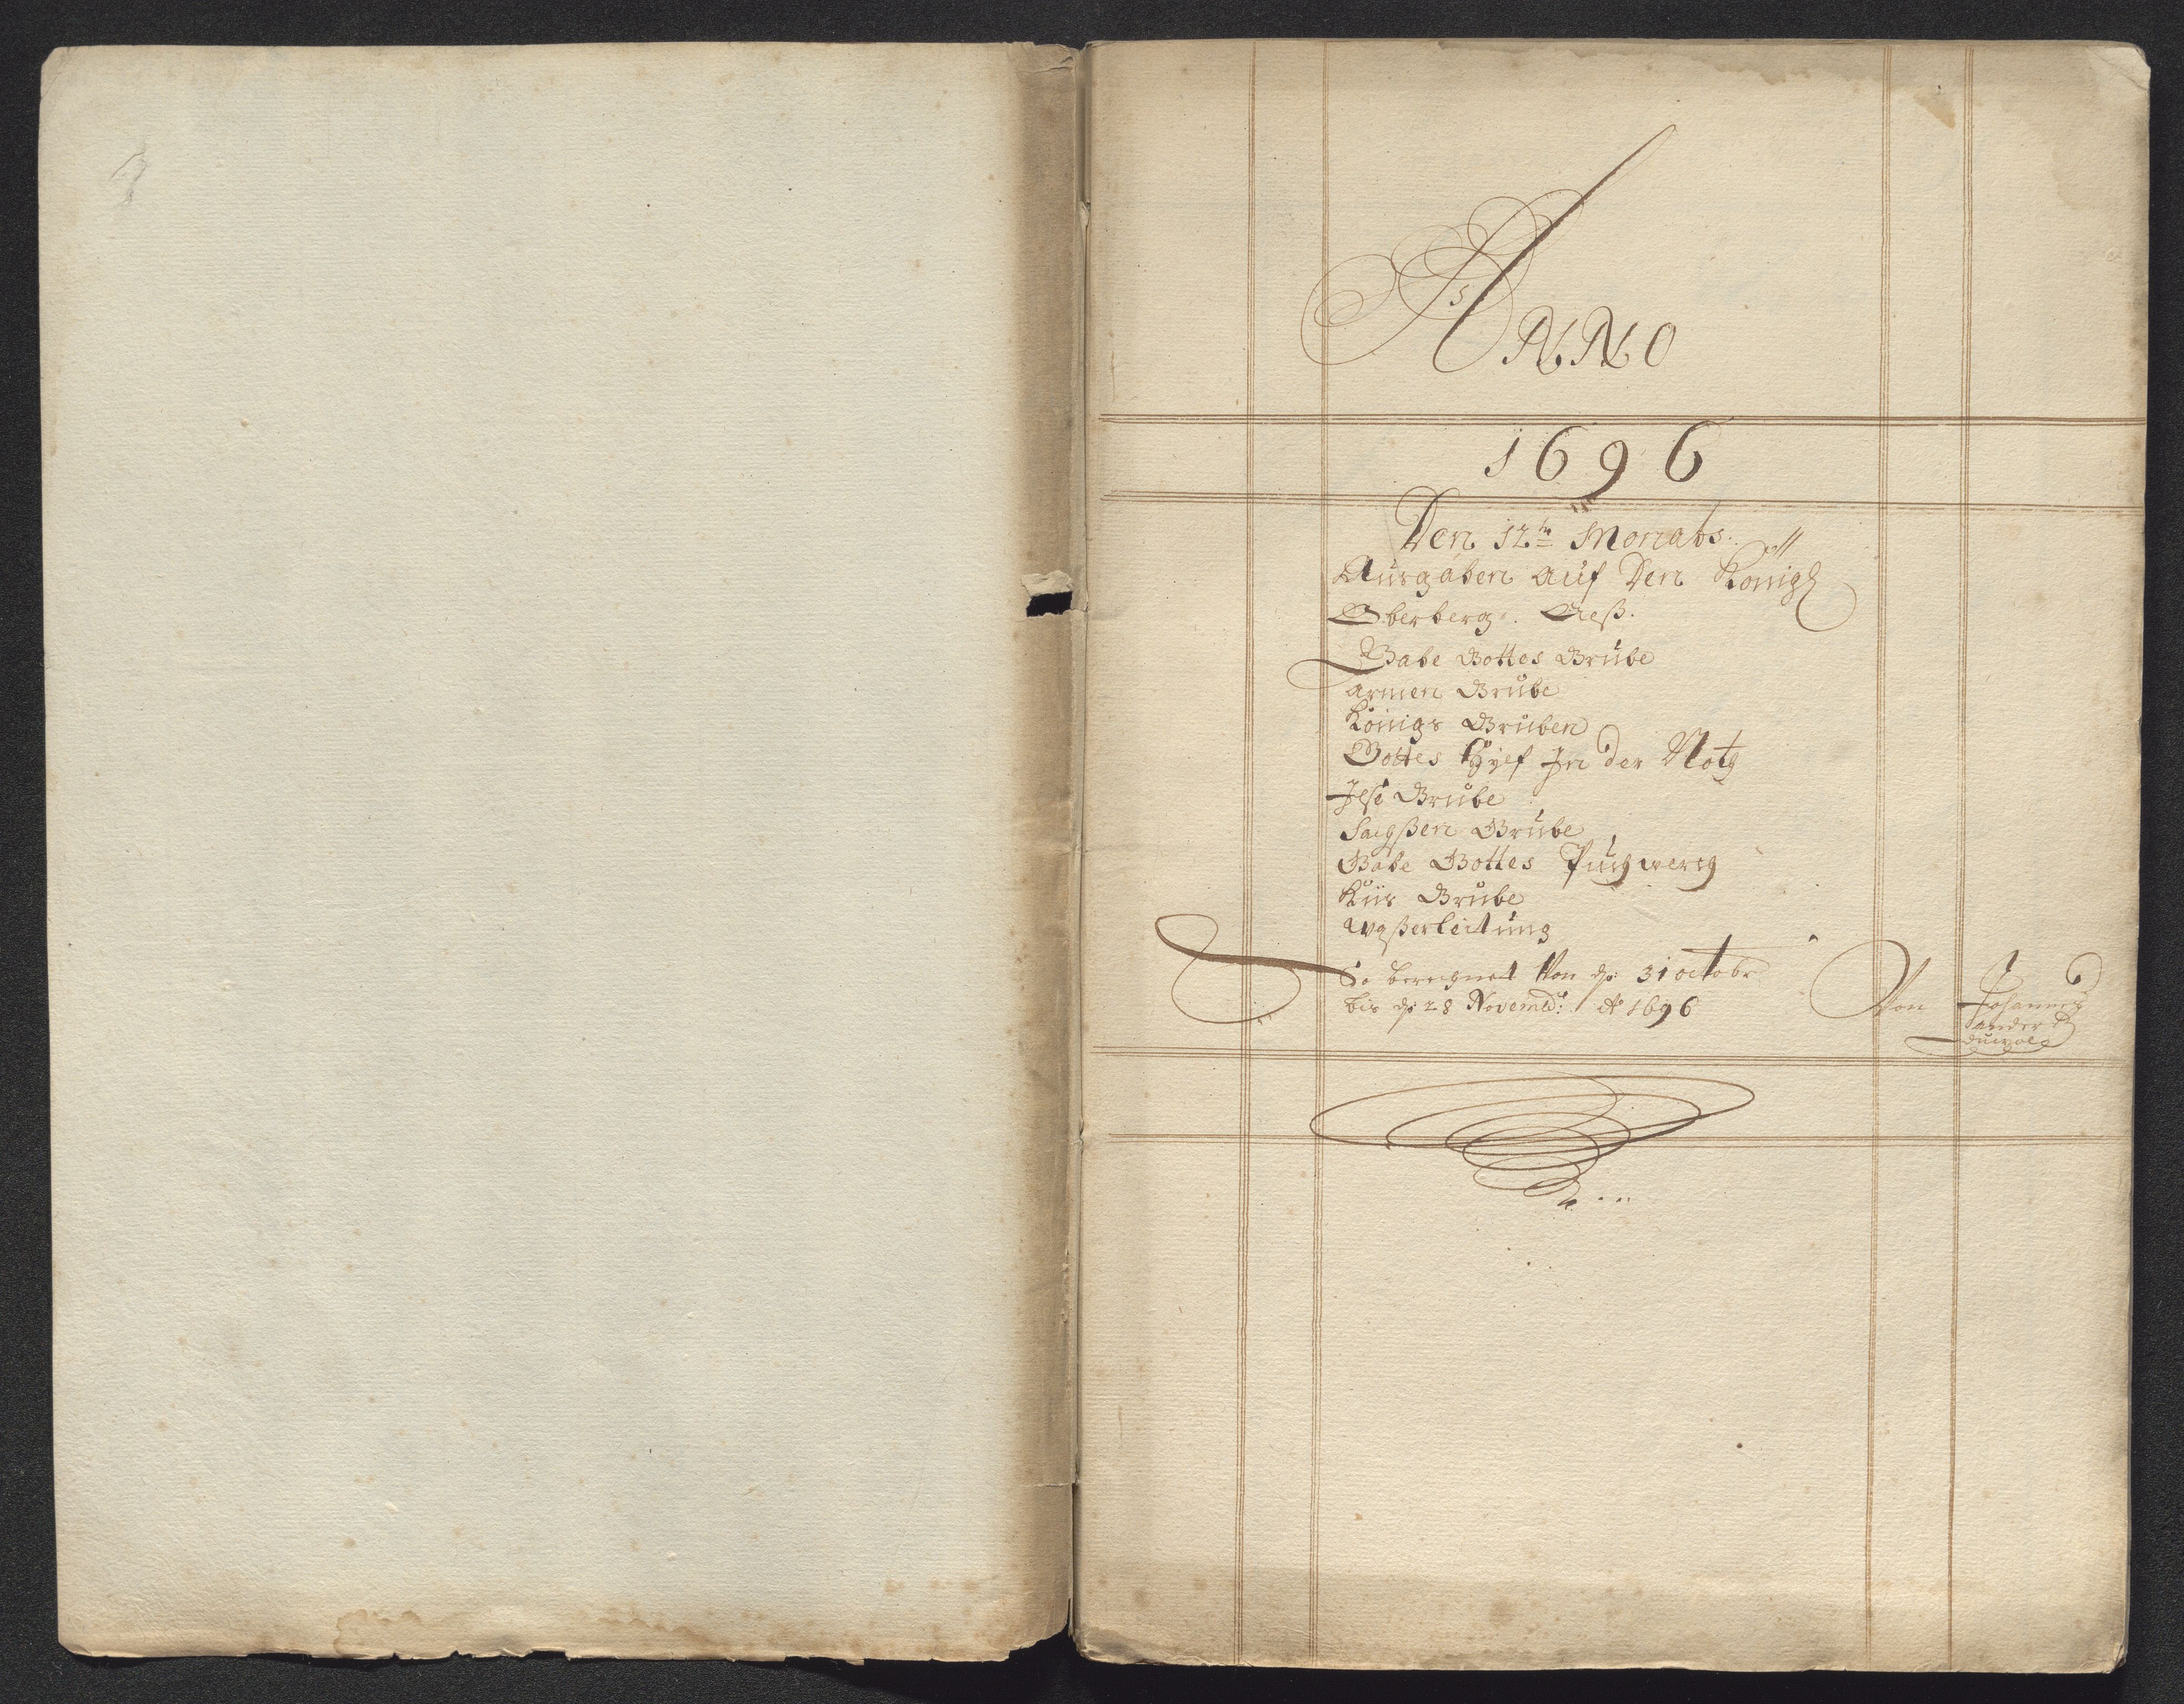 ANNO
1696
Den 12tn Monats
Ausgaben auf Den Königl
Oberberg
Gabe Gottes Grube
armen Grube
Königs Gruben
Gottes Hylf In der Notg
Grube
Sagßen Grube
Gabe Gottes Pugwerg
Grube
waßerleitung
So beregnet Von d: 31 octobr
bis d: 28 Novemb: Ao 1696
Von Johannes
ander